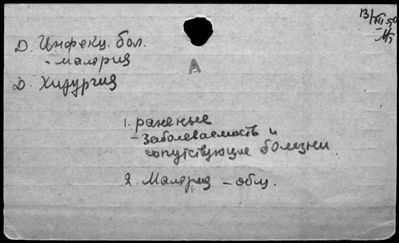 Д. Инфекц. бол.
- малярия
Д. Хирургия
А
1. раненые
- заболеваемость и
сопутствующие болезни
2. Малярия - общ.